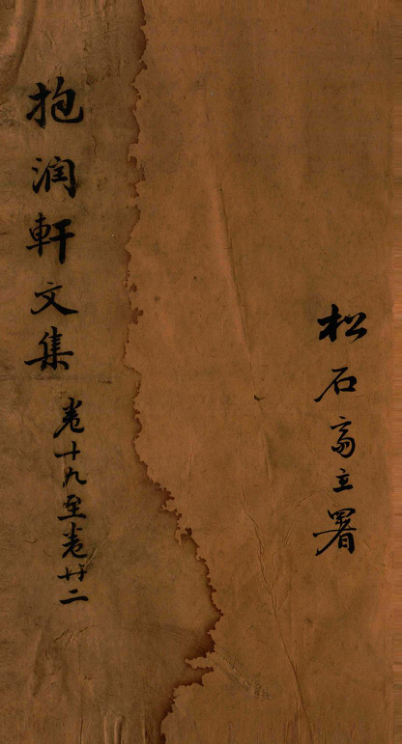 松石斋立署
抱润軒文集
卷十九至卷廿二